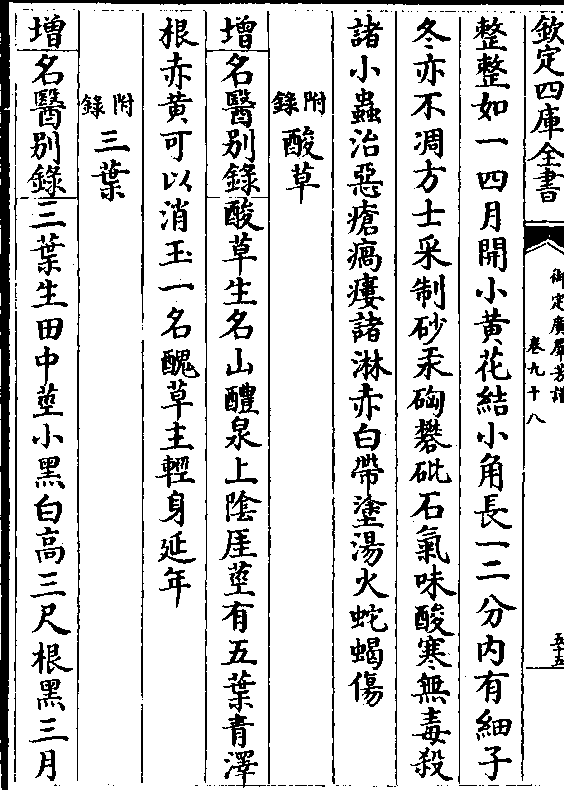 欽定四庫全書
御定廣羣芳譜
卷九十八
五十五
整整如一四月開小黄花結小角長一二分内有細子
冬亦不凋方士采制砂汞硇礬砒石氣味酸寒無毒殺
諸小蟲治惡瘡瘑瘻諸淋赤白帶塗湯火蛇蝎傷
附錄酸草
增名醫别錄酸草生名山醴泉上陰厓莖有五葉青澤
根赤黄可以消玉一名醜草主輕身延年
附錄三葉
增名醫别錄三葉生田中莖小黑白高三尺根黑三月